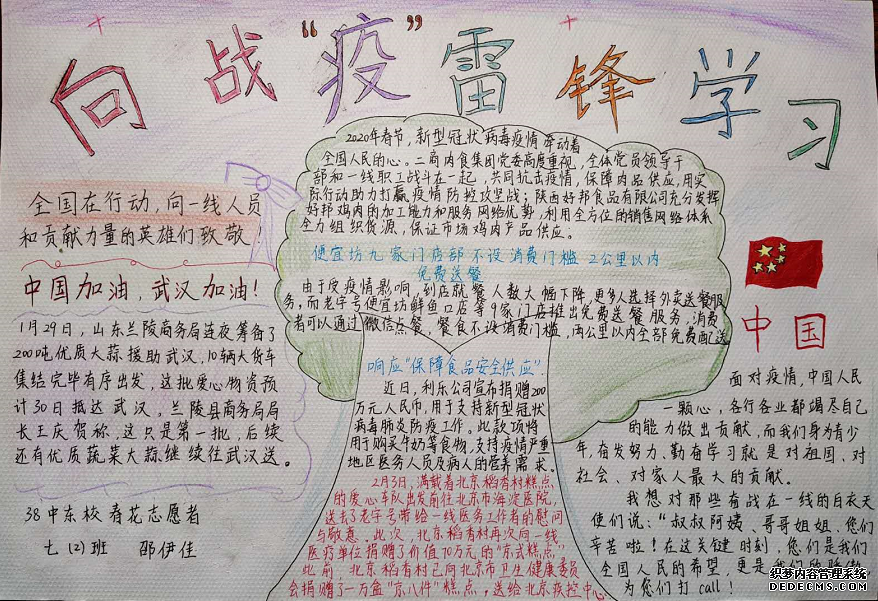 向战“疫”雷锋学习
2020年春节,新型冠状病毒疫情牵动着
全国人民的心。二商肉食集团党委高度重视,全体党员领导干
部和一线职工战斗在一起,共同抗击疫情,保障肉品供应,用实
际行动助力打赢疫情防控攻坚战;陕西好邦食品有限公司充分发挥
好邦鸡肉的加工能力和服务网络优势,利用全方位的销售网络体系
全力组织货源,保证市场鸡肉产品供应。
便宜坊九家门店部不设消费门槛2公里以内
免费送餐
由于受疫情影响,到店就餐人数大幅下降,更多人选择外卖送餐服
务,而老字号便宜坊鲜鱼口店等9家门店推出免费送餐服务,消费
者可以通过微信点餐,餐食不设消费门槛,两公里以内全部免费配送
响应“保障食品安全供应”.
近日,利乐公司宣布捐赠200
万元人民币,用于支持新型冠状
病毒肺炎防疫工作。此款项将
用于购买牛奶等食物,支持疫情严重
地区医务人员及病人的营养需求。
2月3日,满载着北京稻香村糕点
的爱心车队出发前往北京市海淀医院,
送去了老字号带给一线医务工作者的慰问
与敬意。此次,北京稻香村再次向一线
医疗单位捐赠了价值10万元的“京式糕点”
此前,北京稻香村已向北京市卫生健康委员
会捐赠了一万盒“京八件”糕点,送给北京疾控中心
全国在行动,向一线人员
和贡献力量的英雄们致敬!
中国加油,武汉加油!
1月29日,山东兰陵商务局连夜筹备了
200吨优质大蒜援助武汉,10辆大货车
集结完毕有序出发,这批爱心物资预
计30日抵达武汉。兰陵县商务局局
长王庆贺称,这只是第一批,后续
还有优质蔬菜大蒜继续往武汉送。
38中东校春花志愿者
七(2)班 邵伊佳
中国
面对疫情,中国人民
一颗心,各行各业都竭尽自己
的能力做出贡献,而我们身为青少
年,奋发努力、勤奋学习就是对祖国、对
社会、对家人最大的贡献。
我想对那些奋战在一线的白衣天
使们说:“叔叔阿姨、哥哥姐姐、您们
辛苦啦!在这关键时刻,您们是我们
全国人民的希望,更是我们的骄傲,
为您们打call!
织梦内容管理系统
DEDECMS.COM